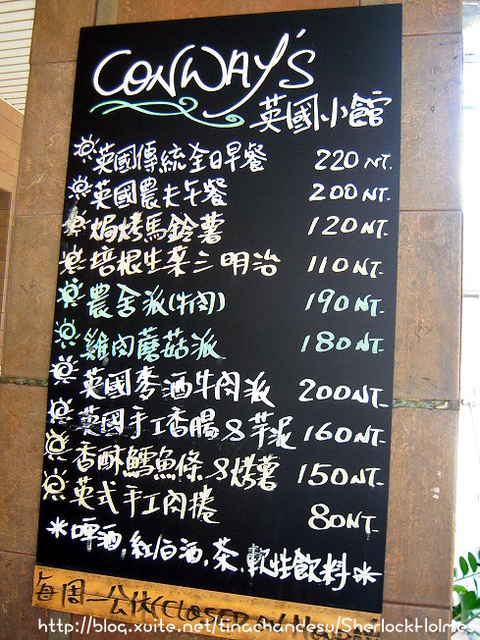 CONWAY'S
英國小館
英國傳統全日早餐 220 NT.
英國農夫午餐 200 NT.
焗烤馬鈴薯 120 NT.
培根生菜三明治 110 NT.
農舍派(牛肉) 190 NT.
雞肉蘑菇派 180 NT.
英國麥酒牛肉派 200 NT.
英國手工香腸&芋泥 160 NT.
香酥鱈魚條&烤薯 150 NT.
英式手工肉捲 80 NT.
*啤酒,紅白酒,茶,軟性飲料*
每周一公休(CLOSED ON
http://blog.xuite.net/tinachancesu/SherlockHolmes